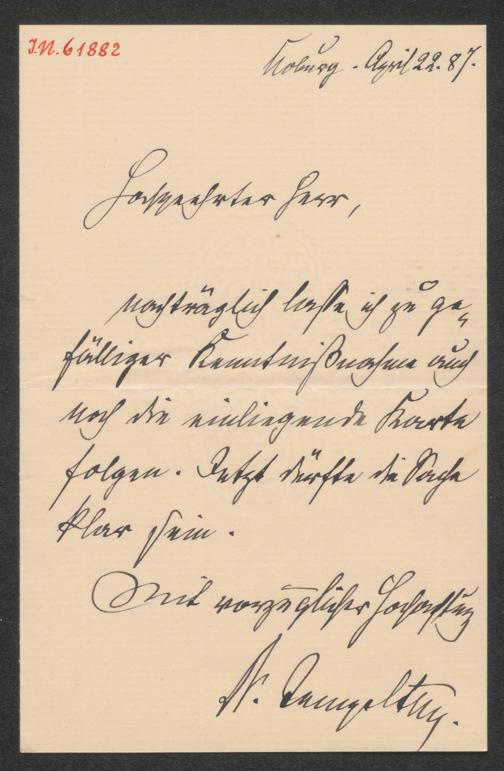 I.N. 61882
Koburg. April 22. 87.
Hochgeehrter Herr,
nachträglich lasse ich zu ge-
fälliger Kenntnißnahme auch
noch die einliegende Karte
folgen. Jetzt dürfte die Sache
klar sein.
Mit vorzüglicher Hochachtung
Tempeltey.